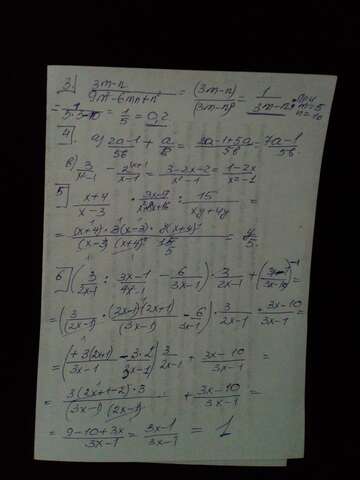 3. (3m-n)/(9m²-6mn+n²) = (3m-n)/(3m-n)² = 1/(3m-n); при m=5 n=10
= 1/(5·3-10) = 1/5 = 0,2.
4. а) (2a-1)/5b + a/b = (2a-1+5a)/5b = (7a-1)/5b.
в) 3/(x²-1) - 2/(x-1) = (3-2x-2)/(x²-1) = (1-2x)/(x²-1)
5 (x+4)/(x-3) · / : 15/(xy+4y) =
= (x+4)·3(x-3)·y(x+4)/(x-3)(x+4)²·15 = y/5.
6. (3/(2x-1) : (3x-1)/(4x²-1) - 6/(3x-1)) · 3/(2x-1) + =
= (3/(2x-1) · (2x-1)(2x+1)/(3x-1) - 6/(3x-1)) · 3/(2x-1) + (3x-10)/(3x-1) =
= (3(2x+1)/(3x-1) - 3·2/(3x-1)) 3/(2x-1) + (3x-10)/(3x-1) =
= 3(2x+1-2)·3/(3x-1)(2x-1) + (3x-10)/(3x-1) =
= (9-10+3x)/(3x-1) = (3x-1)/(3x-1) = 1